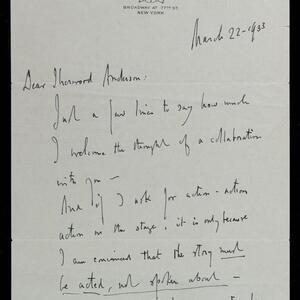 BROADWAY AT 77TH ST.
NEW YORK
March 22-1933
Dear Sherwood Anderson:
Just a few lines to say how much
I welcome the thought of a collaboration
with you —
And if I ask for action - action
action on the stage, it is only because
I am convinced that the story must
be acted, not spoken about —